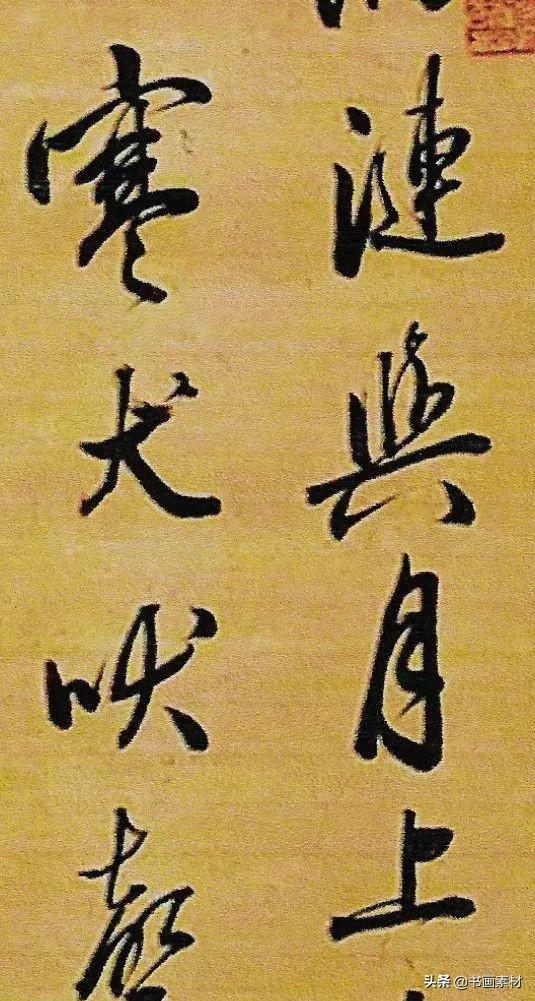 漣與月上
寒犬吠聲
头条 @书画素材